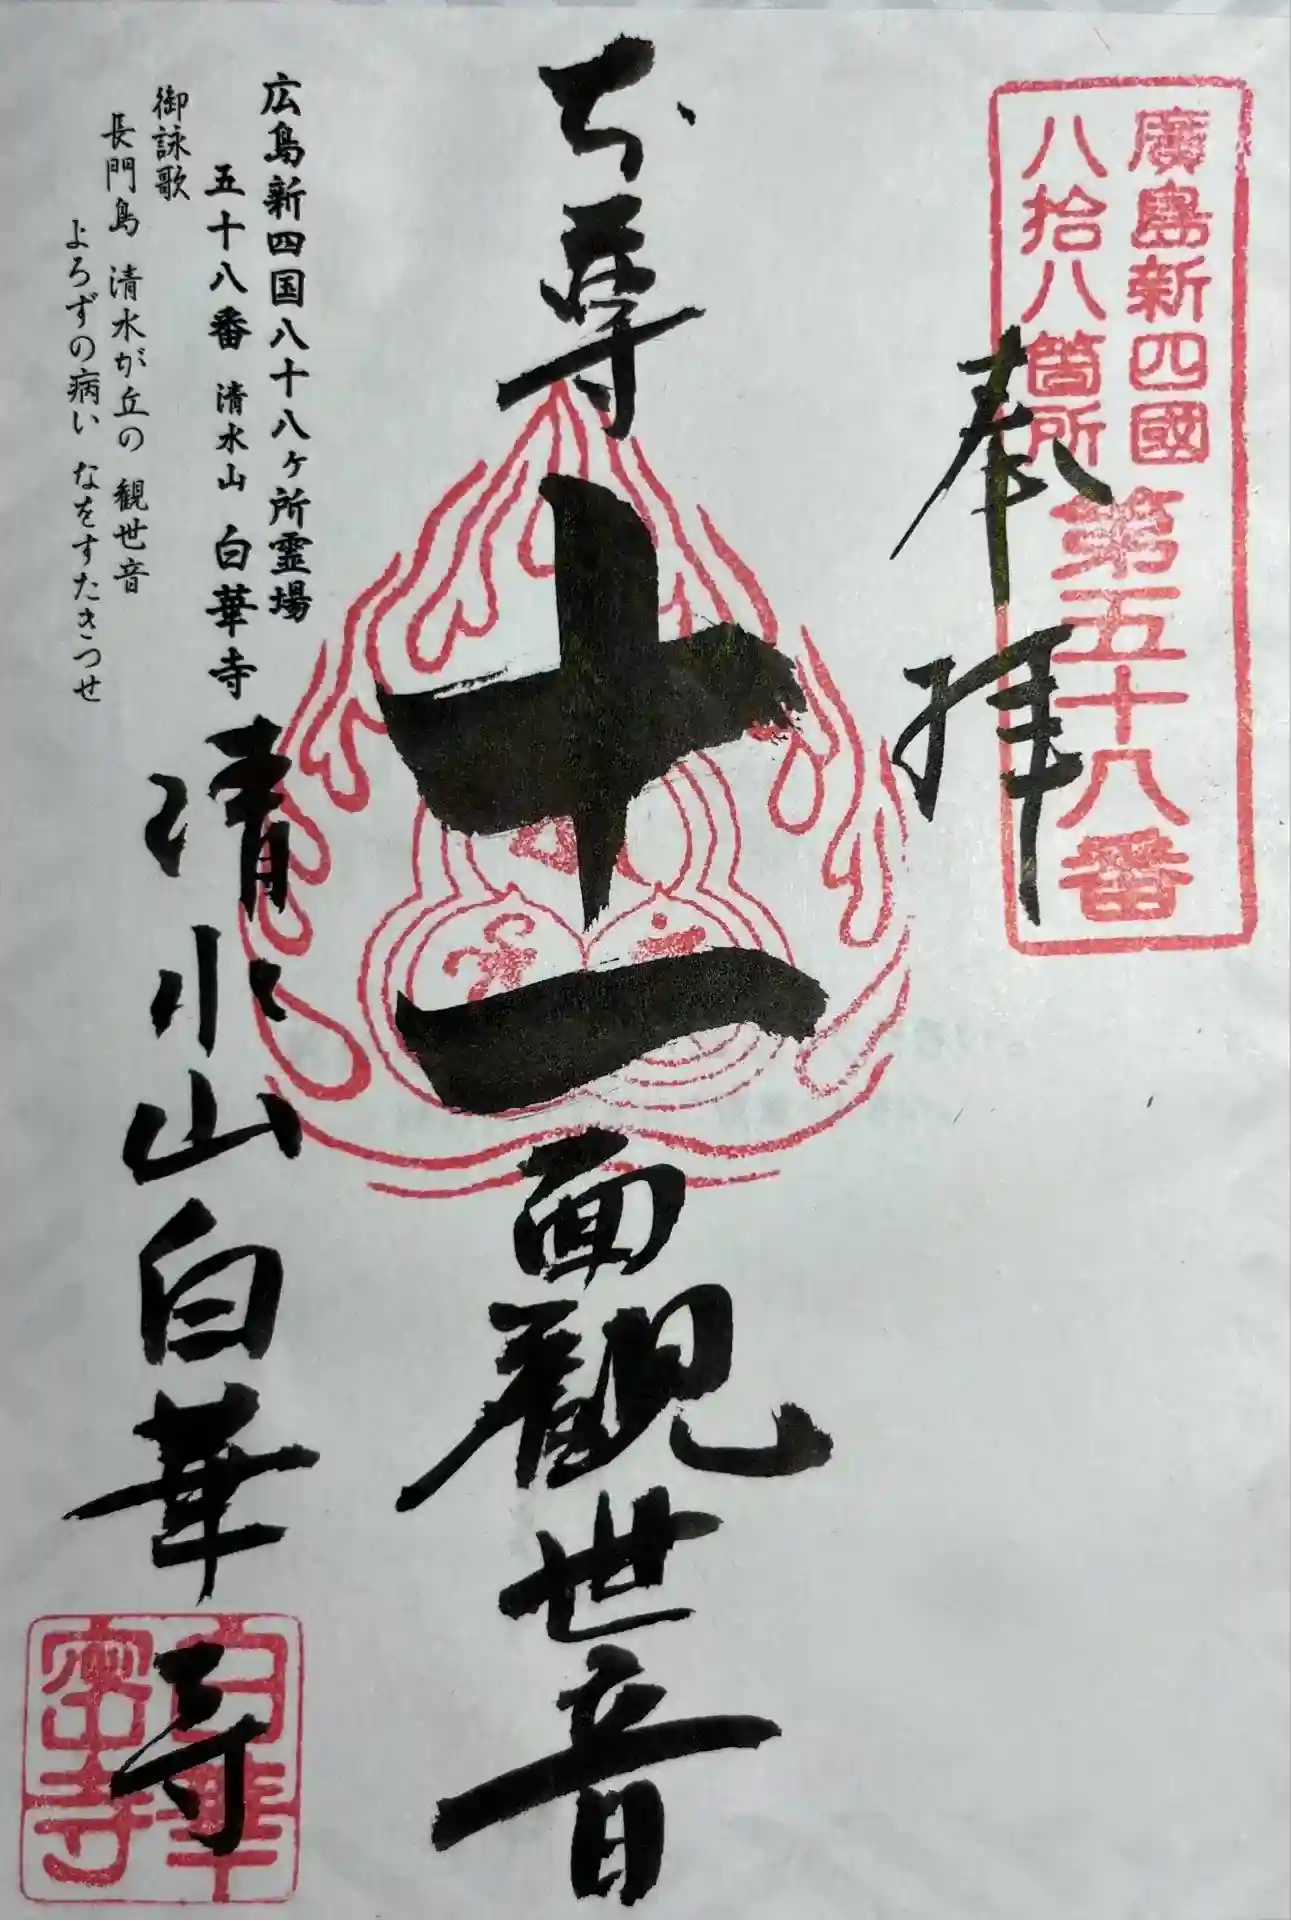 廣島新四國
八拾八箇所
第五十八番
奉拝
本尊十一面観世音
広島新四国八十八ヶ所霊場
五十八番 清水山 白華寺
御詠歌
長門島 清水が丘の 観世音
よろずの病い なをすたきつせ
清水山白華寺
白華
密寺